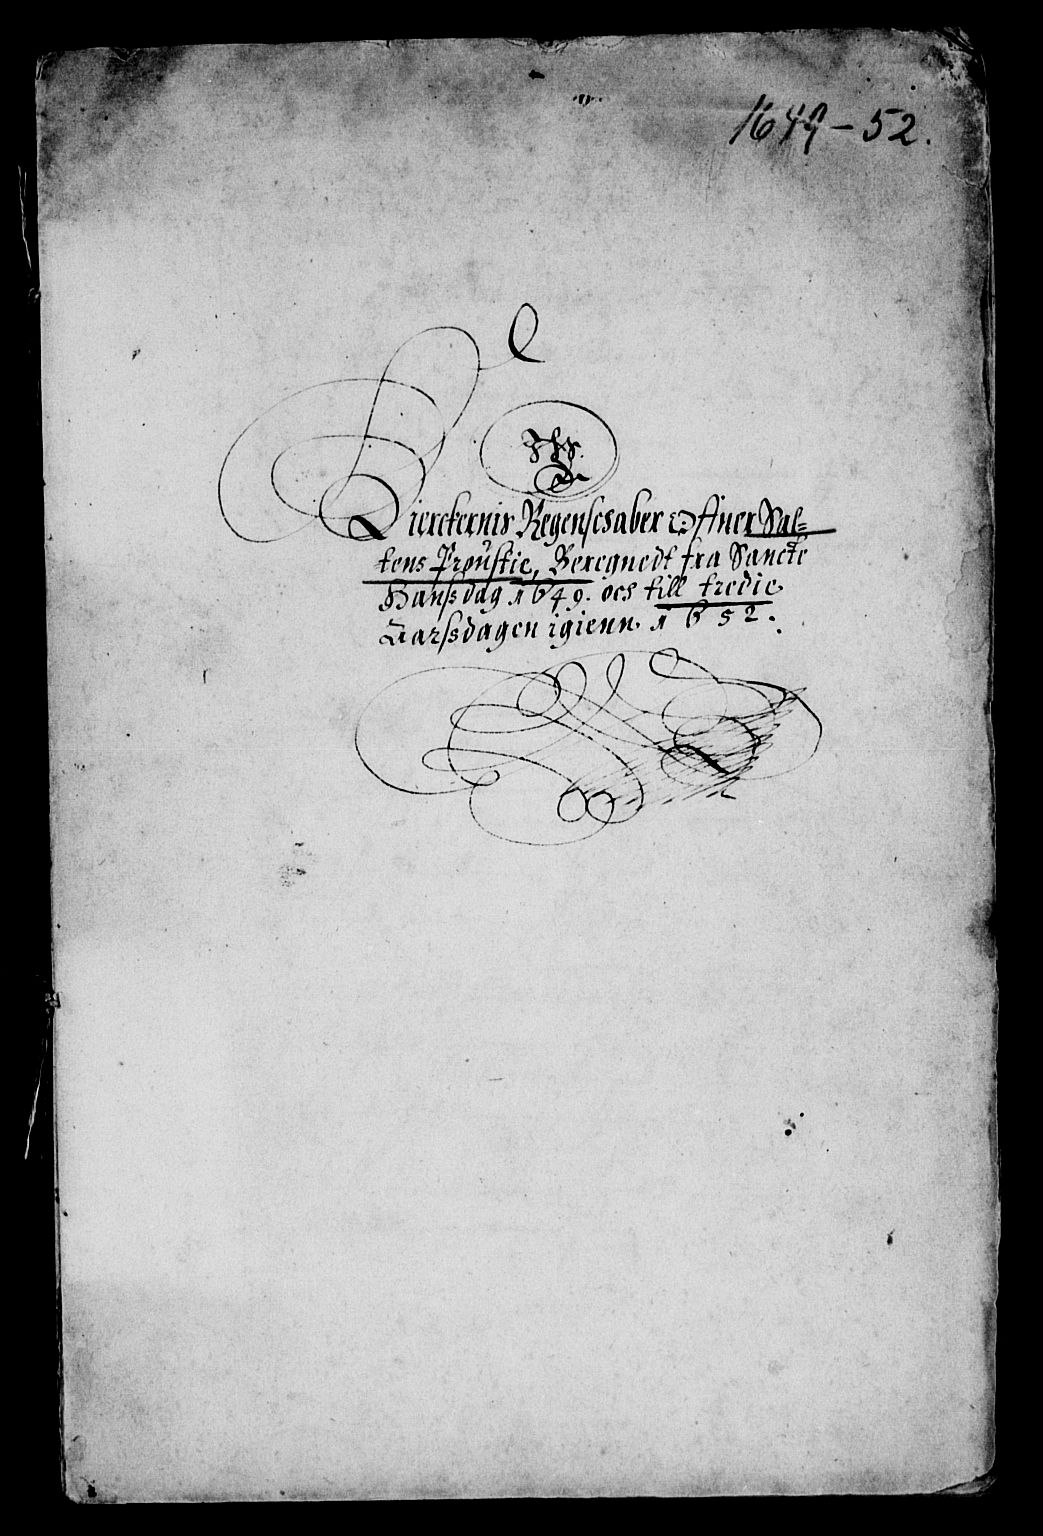 1649-52.
Kierckernis Regenschaber Offuer Sal=
tens Proustie, Beregnedt fra Sancte
Hanssdag 1649. och till tredie
Aarssdagen igienn. 1652.